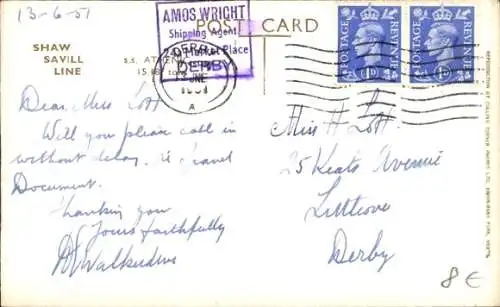 13-6-51
AMOS WRIGHT
Shipping Agent
Market Place
DERBY
POST CARD
SHAW
SAVILL
LINE
S.S.
DERBY
JUNE
1951
A
POSTAGE REVENUE
1D
POSTAGE REVENUE
1D
Dear Miss Lott
Will you please call in
without delay. re Travel
Document.
Thanking you
Yours faithfully
Miss H Lott.
25 Keats Avenue
Littleover
Derby
8€